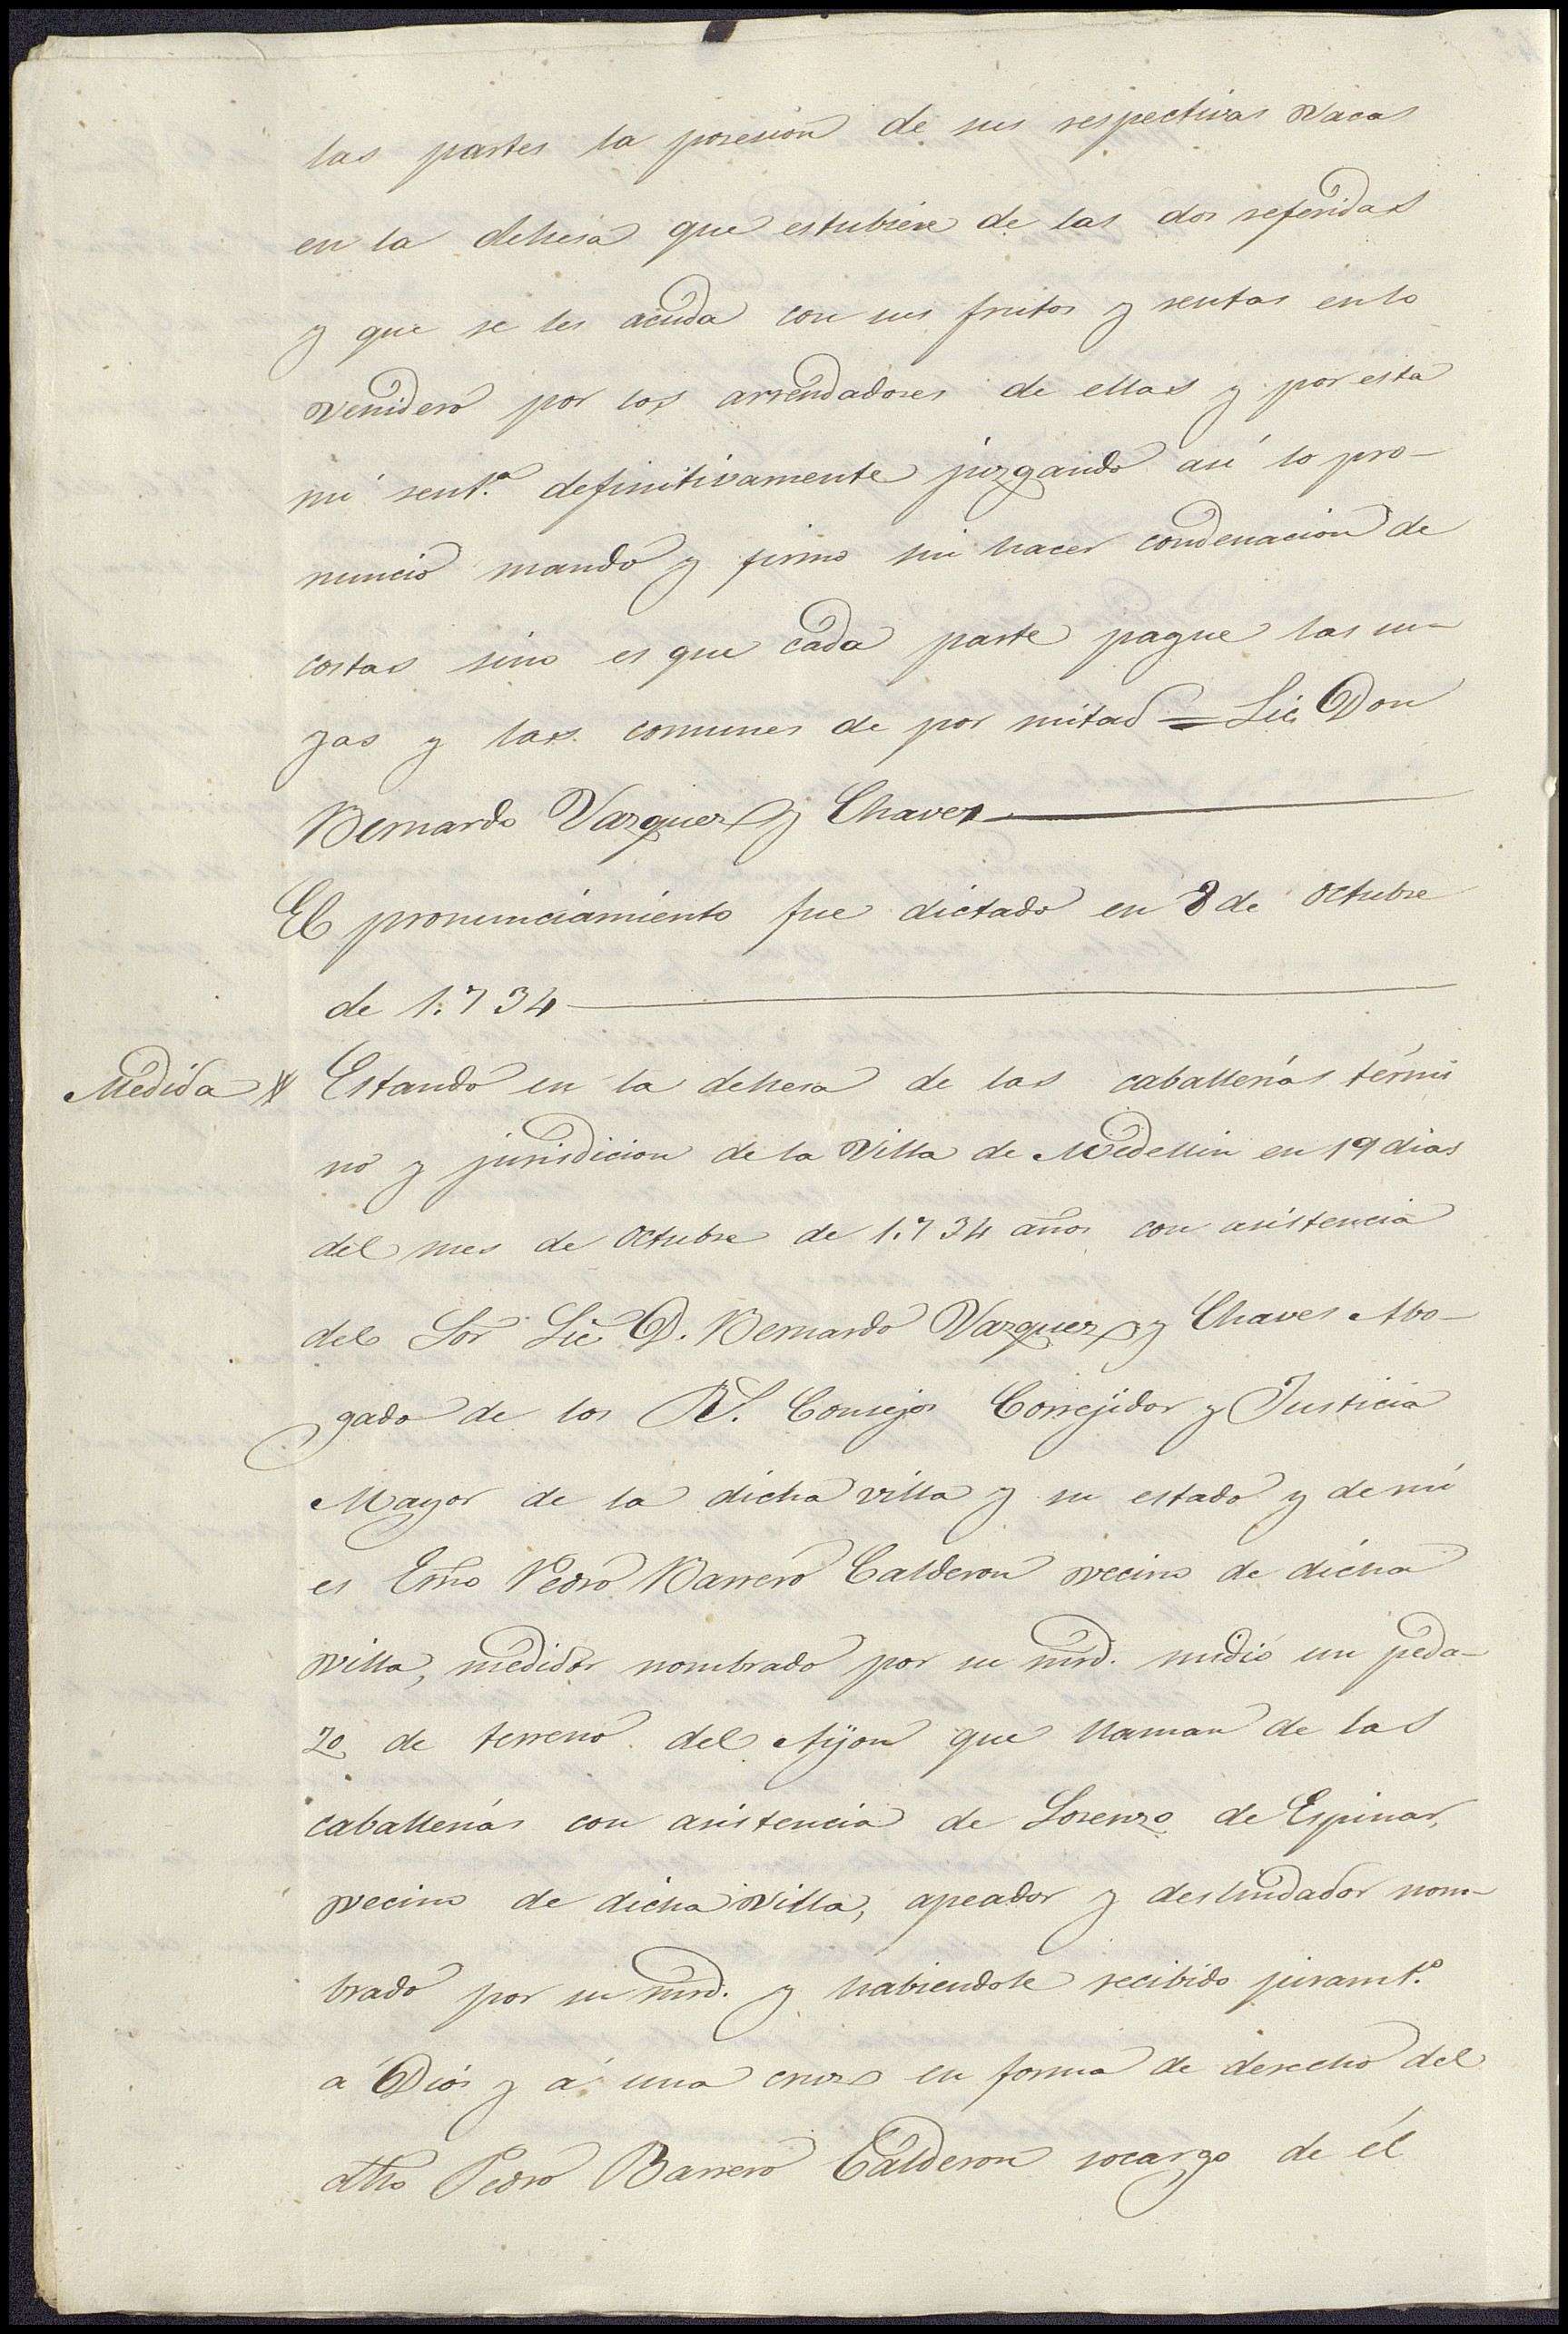 las partes la posesion de sus respectivas Vacas
en la dehesa que estubiere de las dos referidas
y que se les acuda con sus frutos y rentas en lo
venidero por los arrendadores de ellas y por esta
mi sent.ª definitivamente juzgando así lo pro-
nuncio mando y firmo sin hacer condenacion de
costas sino es que cada parte pague las su-
yas y las comunes de por mitad = Lic. Don
Bernardo Vazquez y Chaves
El pronunciamiento fue dictado en 8 de Octubre
de 1.734
Medida Estando en la dehesa de las caballerías térmi
no y jurisdicion de la Villa de Medellin en 19 dias
del mes de Octubre de 1.734 años con asistencia
del Sor Lic D. Bernardo Vazquez y Chaves Abo-
gado de los Rs. Consejos Correjidor y Justicia
Mayor de la dicha villa y su estado y de mí
es Esno Pedro Barrero Calderon vecino de dicha
villa, medidor nombrado por su mrd. midió un peda-
zo de terreno del Ajon que llaman de las
caballerías con asistencia de Lorenzo de Espinar,
vecino de dicha Villa, apeador y deslindador nom-
brado por su mrd. y habiendole recibido juramt.º
á Dios y á una cruz en forma de derecho del
dho Pedro Barrero Calderon socargo de él